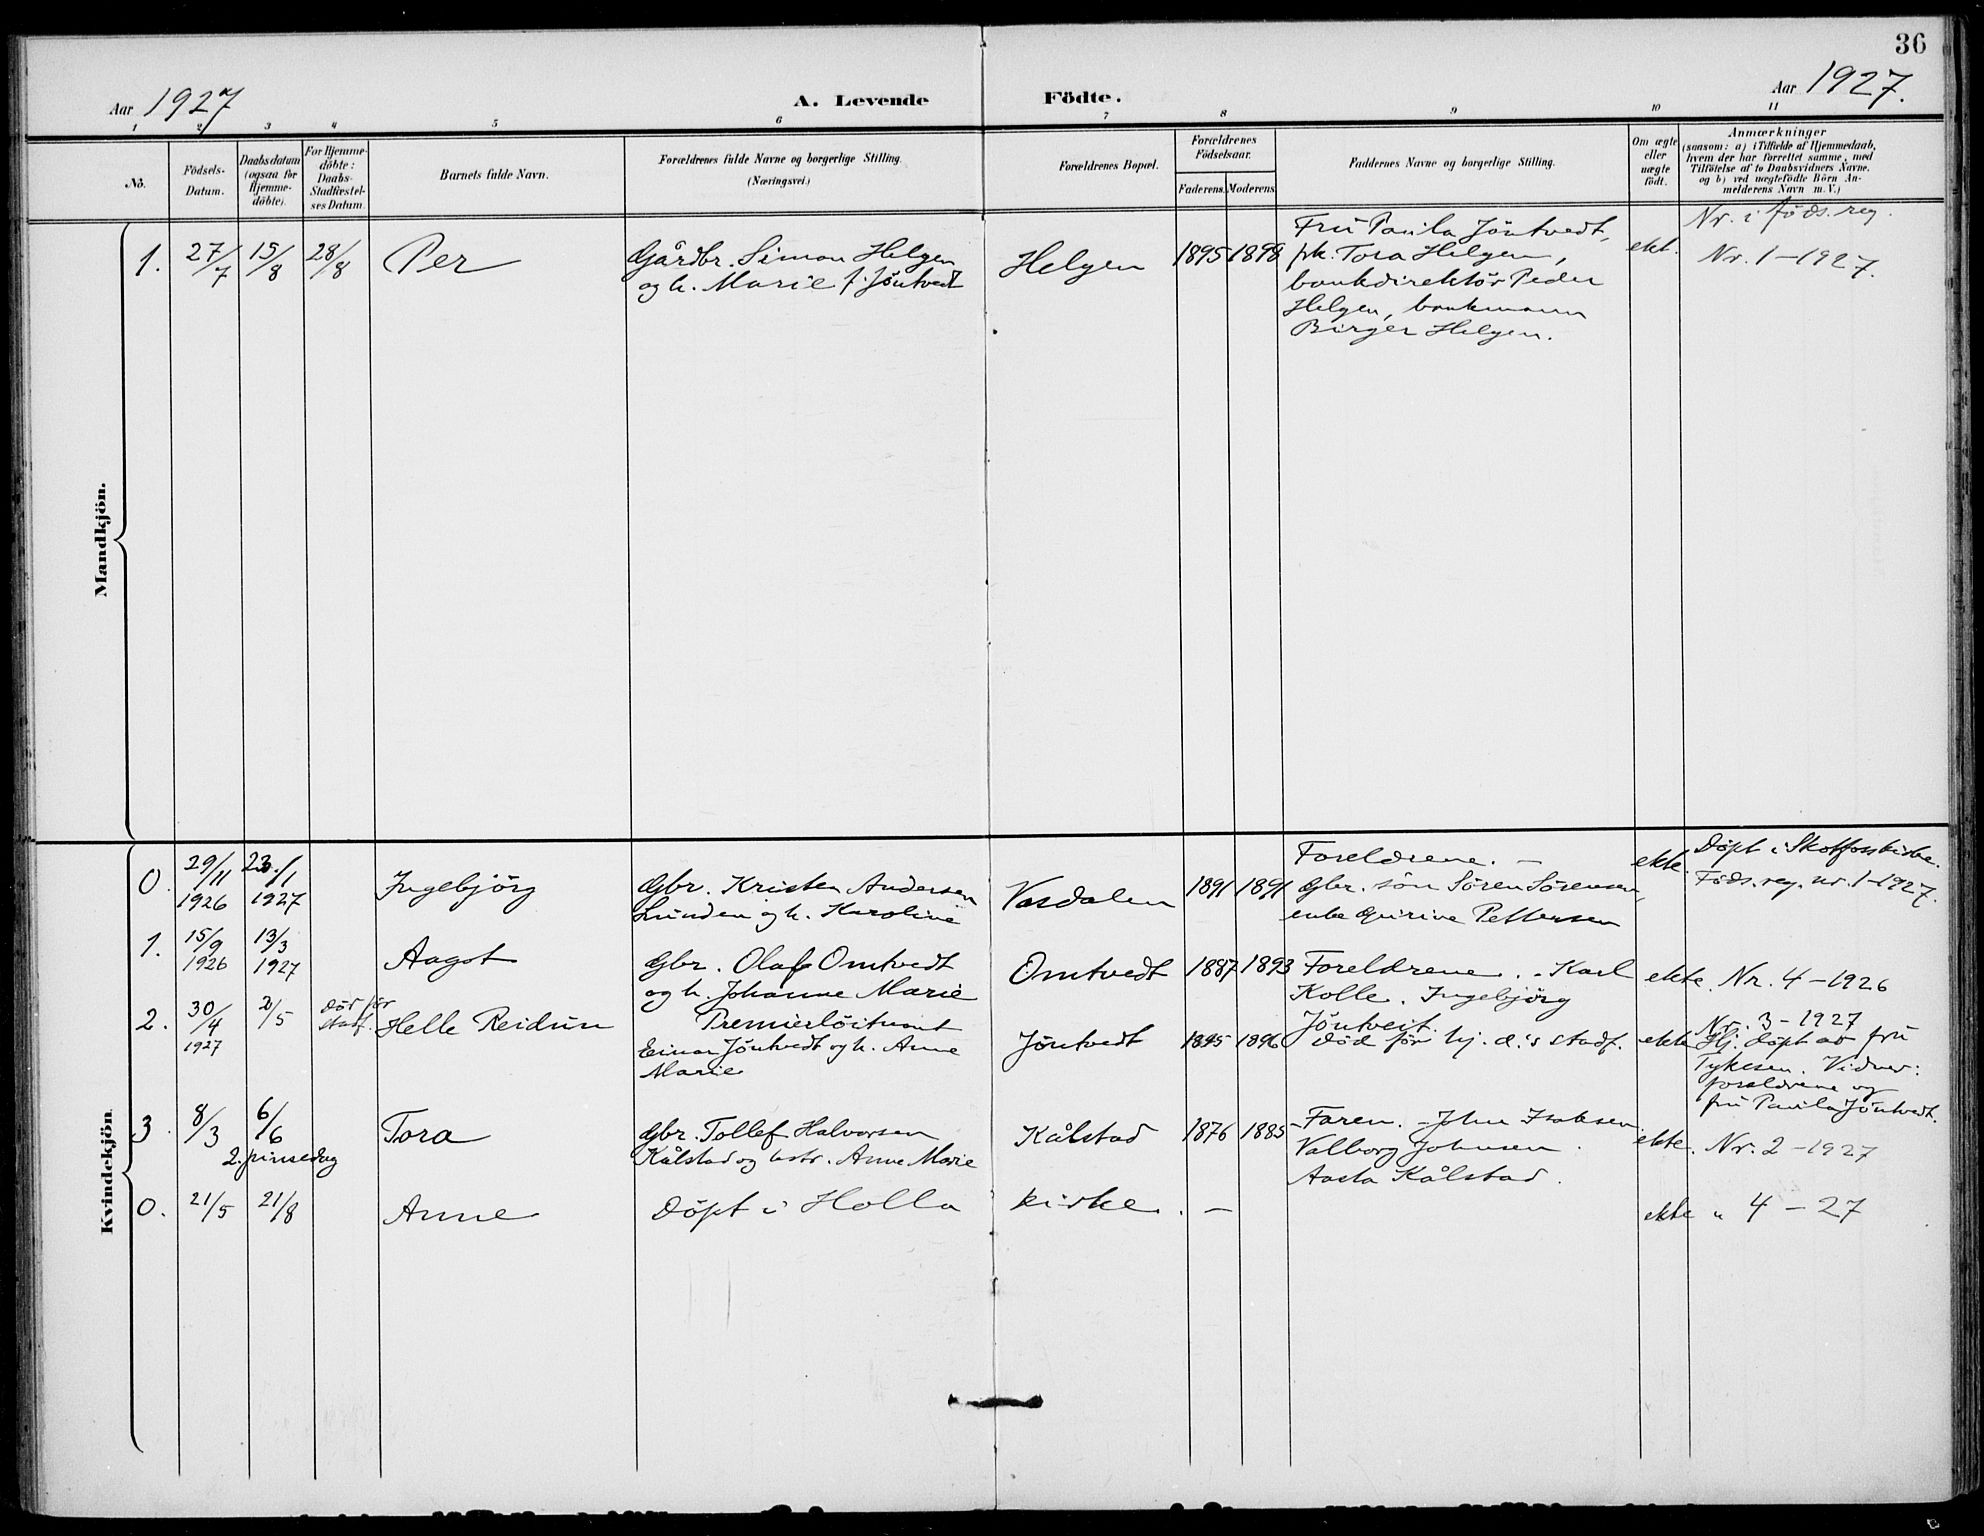 36
Aar 1927
A. Levende Födte.
Aar 1927.
1 2 3 4 5 6 7 8 9 10 11
No.
Födsels-
Datum.
Daabsdatum
(ogsaa for
Hjemme-
döbte).
For Hjemme-
döbte:
Daabs-
Stadfæstel-
ses Datum.
Barnets fulde Navn.
Forældrenes fulde Navne og borgerlige Stilling.
(Næringsvei.)
Forældrenes Bopæl.
Forældrenes
Födselsaar.
Faderens. Moderens.
Faddernes Navne og borgerlige Stilling.
Om ægte
eller
uægte
födt.
Anmærkninger
(saasom: a) i Tilfælde af Hjemmedaab,
hvem der har forrettet samme, med
Tilföielse af to Daabsvidners Navne,
og b) ved uægtefödte Börn An-
melderens Navn m. V.)
Mandkjön.
1. 27/7 15/8 28/8 Per
Gårdbr. Simon Helgen
og h. Marie f. Jöntvedt
Helgen 1895 1898
Fru Paula Jöntvedt,
frk. Tora Helgen,
bankdirektör Peder
Helgen, bankmann
Birger Helgen.
ekt.
Nr. i föds. reg.
Nr. 1 – 1927.
Kvindekjön.
0. 29/11 1926 23./1 1927 Ingebjörg
Gbr. Kristen Andersen
Lunden og h. Karoline
Vasdalen 1891 1891
Foreldrene. –
Gbr. sön Sören Sörensen,
enke Qvirine Pettersen
ekte.
Döpt i Skotfoss kirke.
Föds. reg. nr. 1–1927.
1. 15/9 1926 13/3 1927 Aagot
Gbr. Olaf Omtvedt
og h. Johanne Marie
Omtvedt 1887 1893
Foreldrene. – Karl
Kolle. Ingebjörg
Jöntveit.
ekte. Nr. 4 – 1926
2. 30/4 1927 2/5 död för
stadf. Helle Reidun
Premierlöitnant
Einar Jöntvedt og h. Anne
Marie
Jöntvedt 1895 1896
död för hj. d.'s stadf.
ekte
Nr. 3 – 1927
Hj. döpt av fru
Tykesen. Vidner:
foreldrene og
fru Paula Jöntvedt.
3. 8/3 6/6
2. pinsedag
Tora
Gbr. Tollef Halvorsen
Kålstad og hstr. Anne Marie
Kålstad 1876 1885
Faren. – John Isaksen
Valborg Johnsen.
Aasta Kålstad.
ekte. Nr. 2 – 1927
0. 21/5 21/8 Anne
Döpt i Holla kirke. –
ekte " 4 – 27